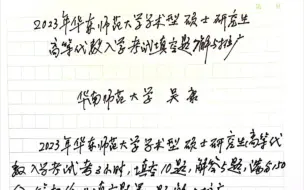 2023年华东师范大学学术型硕士研究生
高等代数入学考试填空题解与推广
华南师范大学 吴
2023年华东师范大学学术型硕士研究生高等代
数入学考试考3小时,填空10题,解答5题,满分150